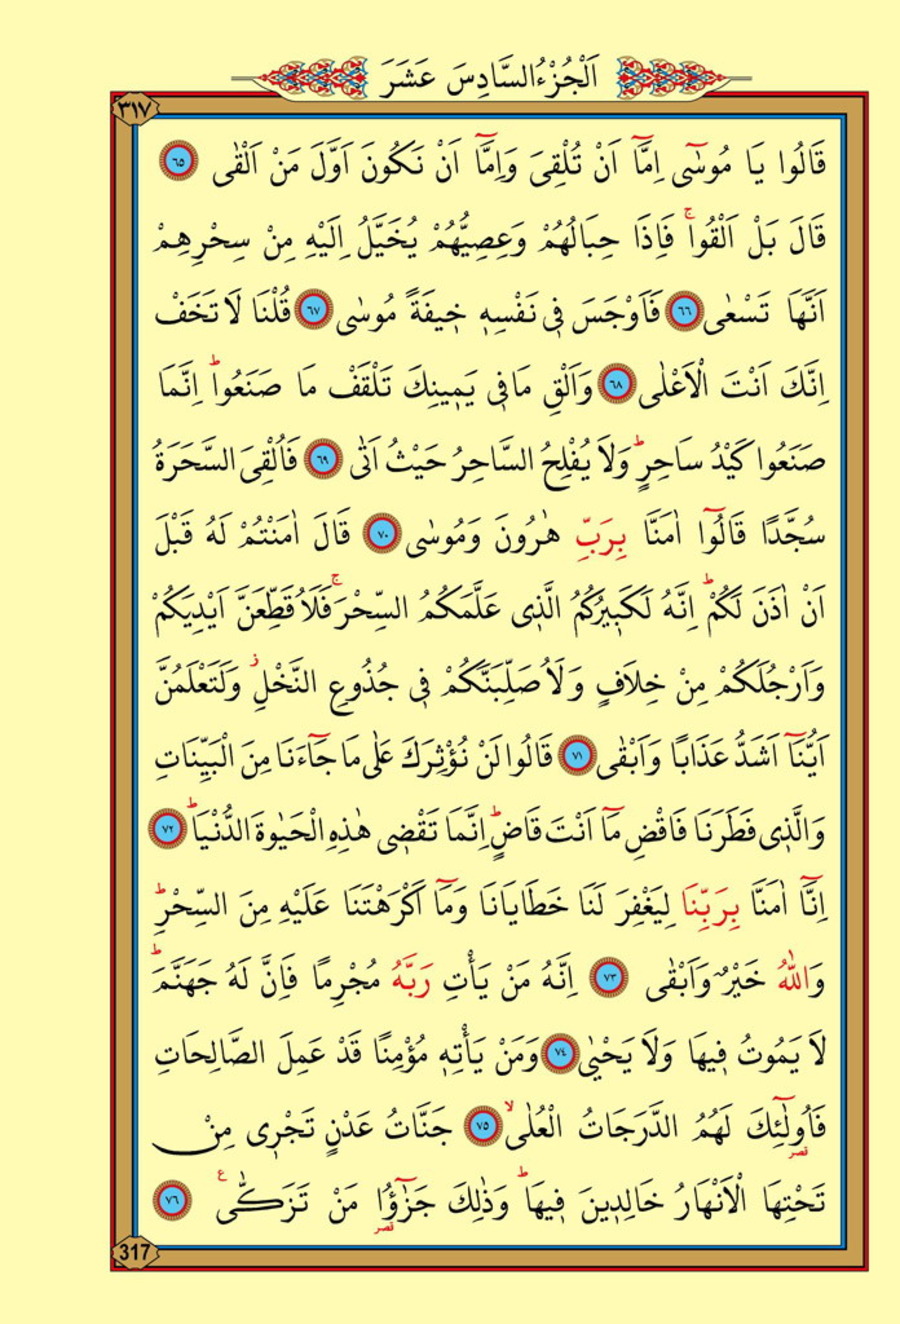 اَلْجُزْءُ السَّادِسَ عَشَرَ
٣١٧
قَالُوا يَا مُوسٰٓى اِمَّٓا اَنْ تُلْقِىَ وَاِمَّٓا اَنْ نَكُونَ اَوَّلَ مَنْ اَلْقٰى ﴿٦٥﴾
قَالَ بَلْ اَلْقُواۚ فَاِذَا حِبَالُهُمْ وَعِصِيُّهُمْ يُخَيَّلُ اِلَيْهِ مِنْ سِحْرِهِمْ
اَنَّهَا تَسْعٰى ﴿٦٦﴾ فَاَوْجَسَ فٖى نَفْسِهٖ خٖيفَةً مُوسٰى ﴿٦٧﴾ قُلْنَا لَا تَخَفْ
اِنَّكَ اَنْتَ الْاَعْلٰى ﴿٦٨﴾ وَاَلْقِ مَا فٖى يَمٖينِكَ تَلْقَفْ مَا صَنَعُواؕ اِنَّمَا
صَنَعُوا كَيْدُ سَاحِرٍؕ وَلَا يُفْلِحُ السَّاحِرُ حَيْثُ اَتٰى ﴿٦٩﴾ فَاُلْقِىَ السَّحَرَةُ
سُجَّدًا قَالُٓوا اٰمَنَّا بِرَبِّ هٰرُونَ وَمُوسٰى ﴿٧٠﴾ قَالَ اٰمَنْتُمْ لَهُ قَبْلَ
اَنْ اٰذَنَ لَكُمْؕ اِنَّهُ لَكَبٖيرُكُمُ الَّذٖى عَلَّمَكُمُ السِّحْرَۚ فَلَاُقَطِّعَنَّ اَيْدِيَكُمْ
وَاَرْجُلَكُمْ مِنْ خِلَافٍ وَلَاُصَلِّبَنَّكُمْ فٖى جُذُوعِ النَّخْلِؗ وَلَتَعْلَمُنَّ
اَيُّنَٓا اَشَدُّ عَذَابًا وَاَبْقٰى ﴿٧١﴾ قَالُوا لَنْ نُؤْثِرَكَ عَلٰى مَا جَٓاءَنَا مِنَ الْبَيِّنَاتِ
وَالَّذٖى فَطَرَنَا فَاقْضِ مَٓا اَنْتَ قَاضٍؕ اِنَّمَا تَقْضٖى هٰذِهِ الْحَيٰوةَ الدُّنْيَاؕ ﴿٧٢﴾
اِنَّٓا اٰمَنَّا بِرَبِّنَا لِيَغْفِرَ لَنَا خَطَايَانَا وَمَٓا اَكْرَهْتَنَا عَلَيْهِ مِنَ السِّحْرِؕ
وَاللّٰهُ خَيْرٌ وَاَبْقٰى ﴿٧٣﴾ اِنَّهُ مَنْ يَأْتِ رَبَّهُ مُجْرِمًا فَاِنَّ لَهُ جَهَنَّمَؕ
لَا يَمُوتُ فٖيهَا وَلَا يَحْيٰى ﴿٧٤﴾ وَمَنْ يَأْتِهٖ مُؤْمِنًا قَدْ عَمِلَ الصَّالِحَاتِ
فَاُولٰٓئِكَ لَهُمُ الدَّرَجَاتُ الْعُلٰىۙ ﴿٧٥﴾ جَنَّاتُ عَدْنٍ تَجْرٖى مِنْ
قصر
تَحْتِهَا الْاَنْهَارُ خَالِدٖينَ فٖيهَاؕ وَذٰلِكَ جَزٰٓؤُا مَنْ تَزَكّٰى ع ﴿٧٦﴾
قصر
317